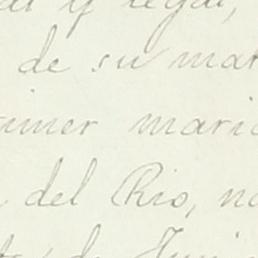 y legal,
de su mar
rimer marid
del Rio, na
de Juni